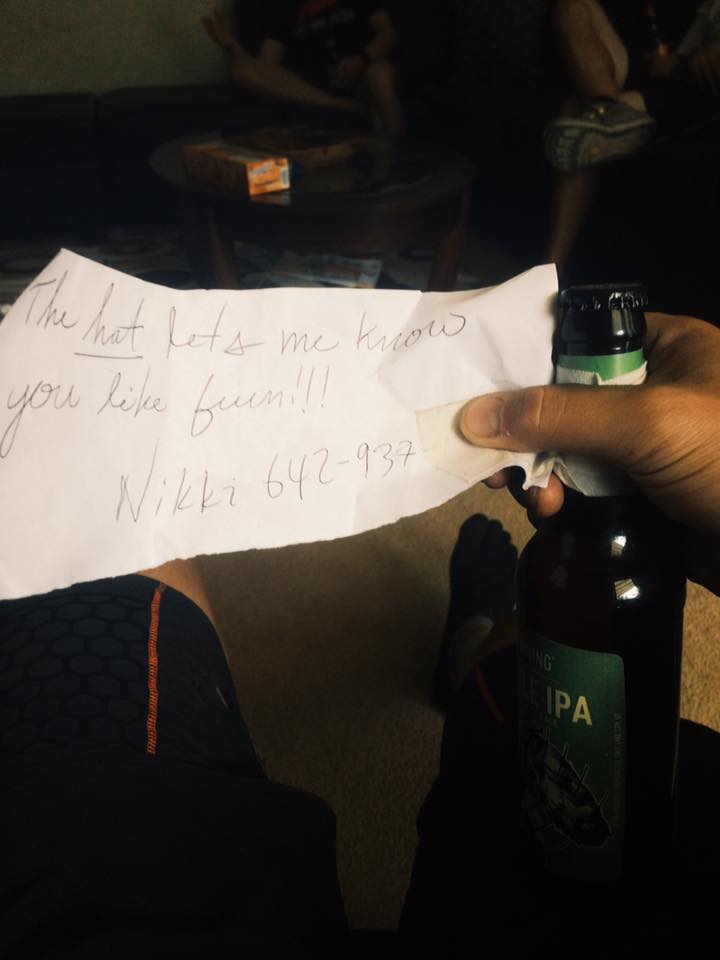 The hat lets me know
you like fun!!!
Nikki 642-937
LING®
LE IPA